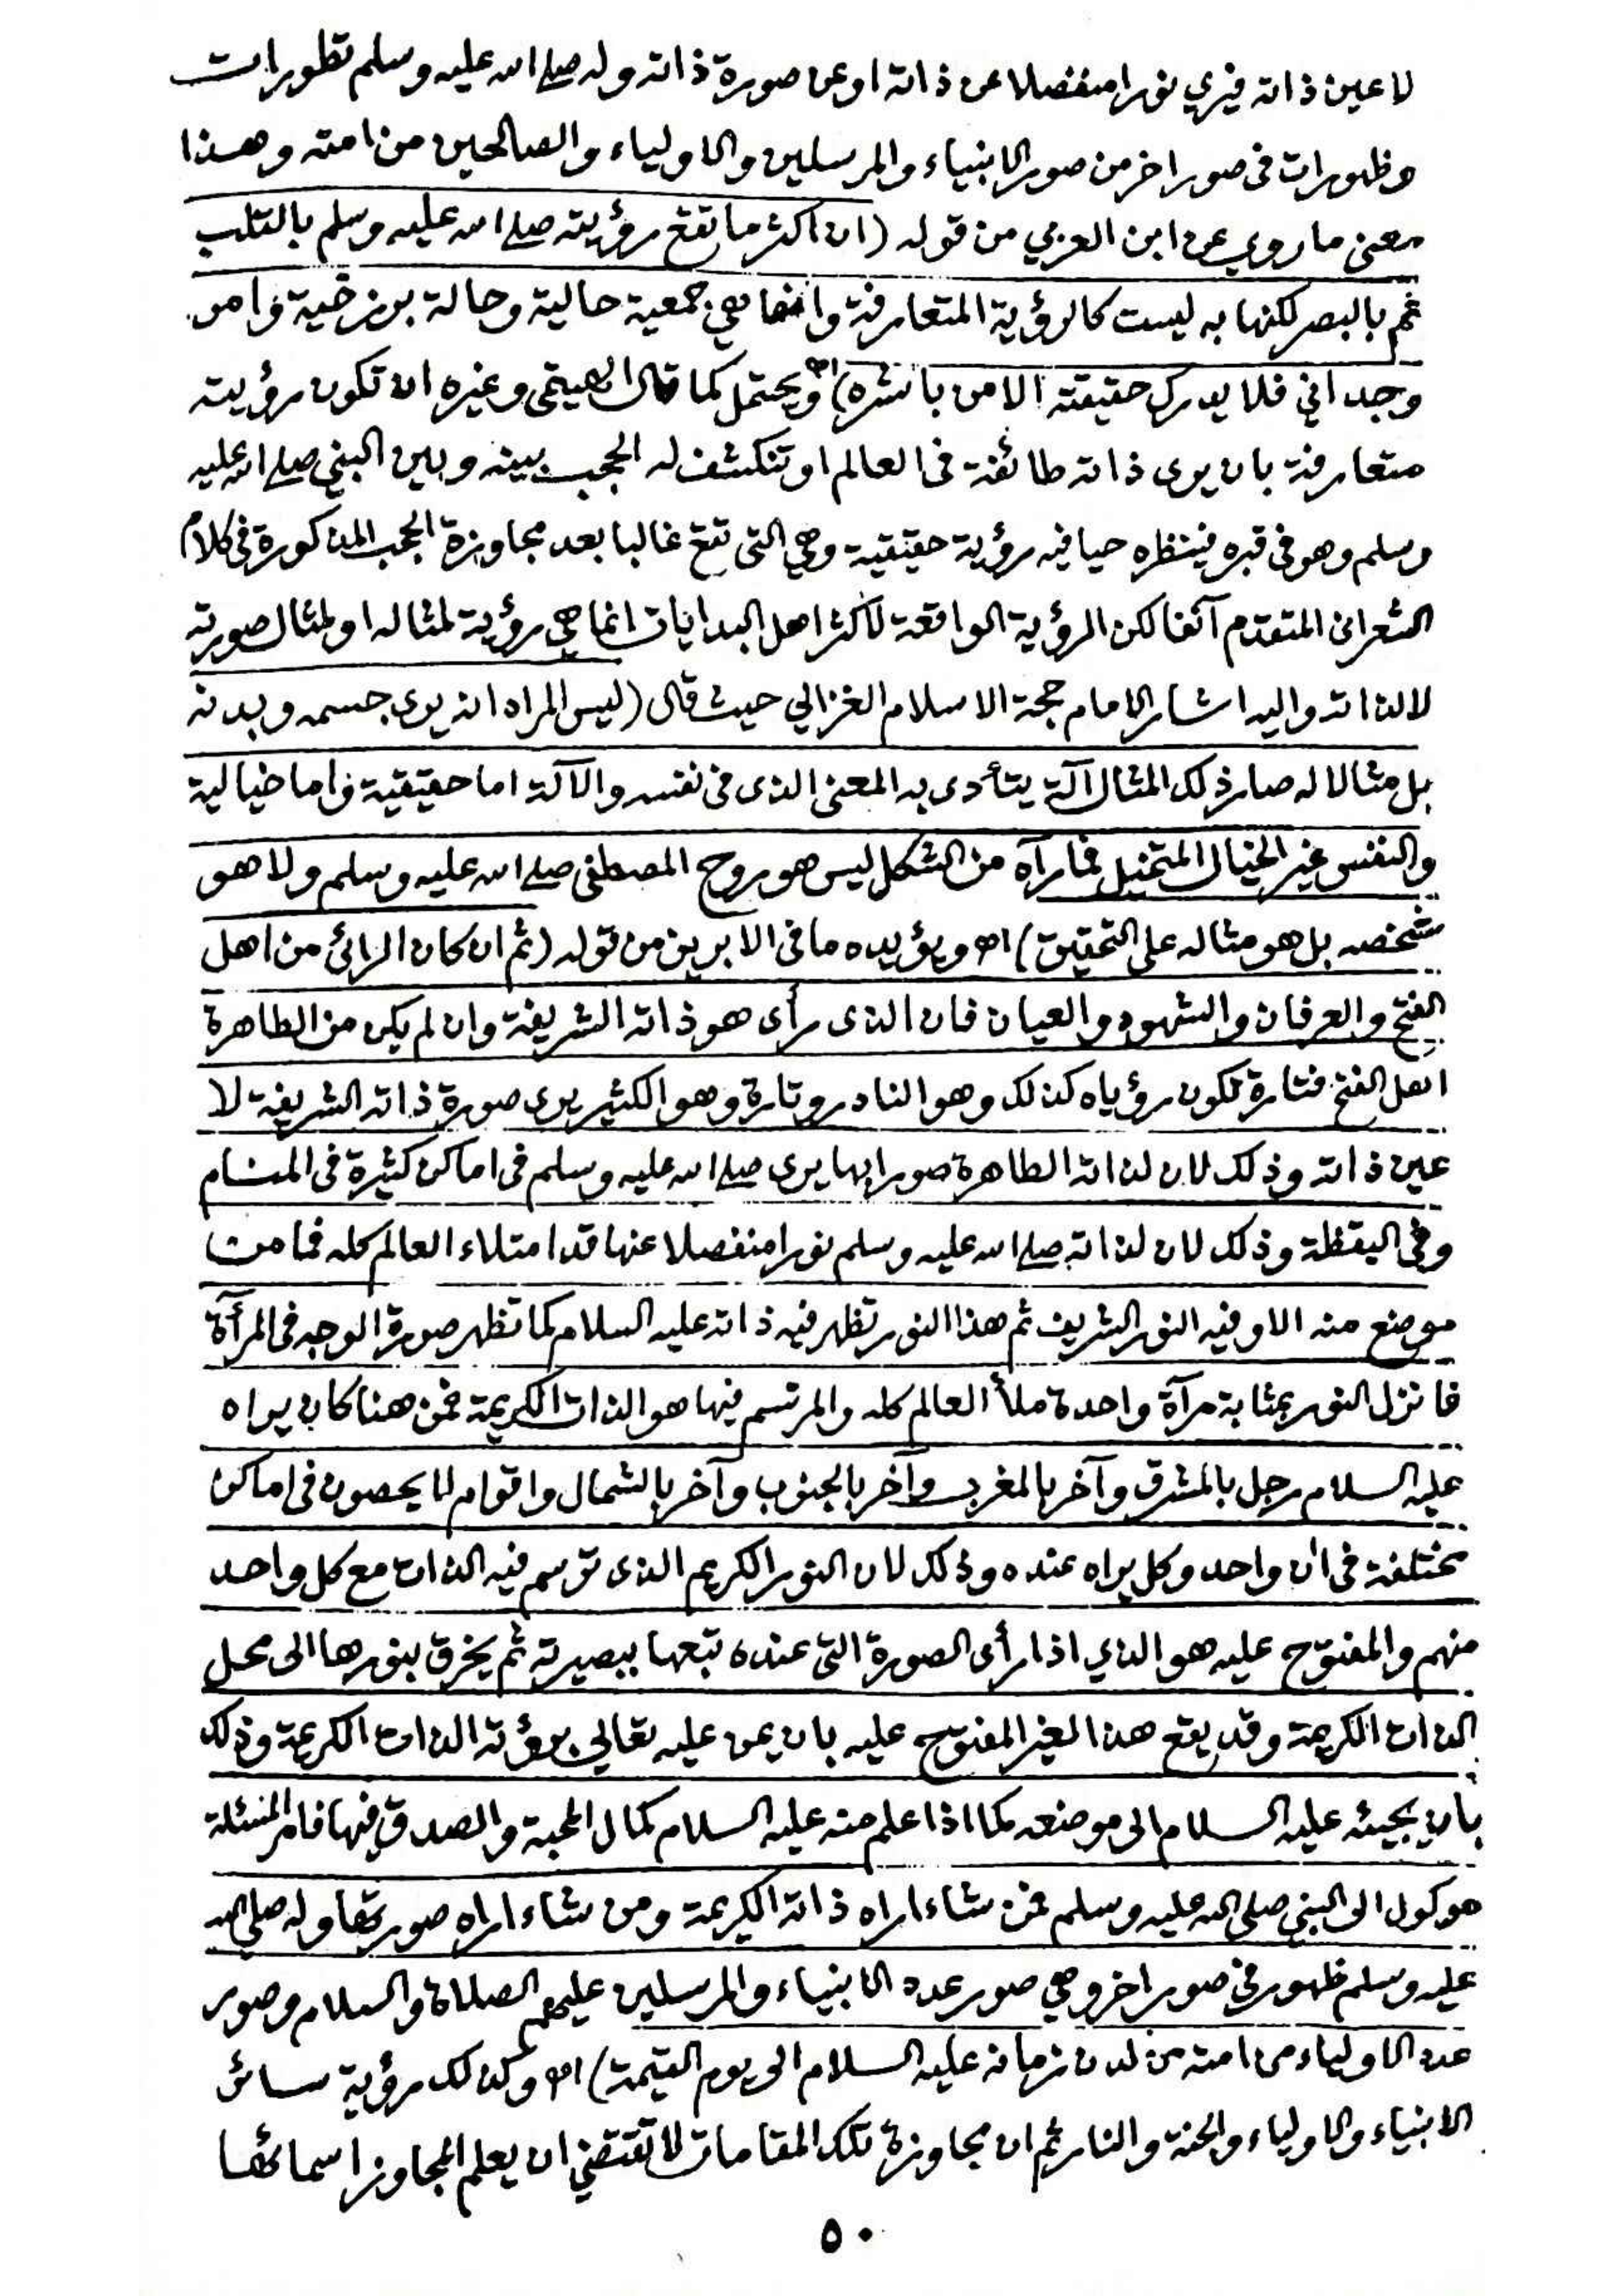 لا عين ذاته فيري نورا منفصلا عن ذاته او عن صورة ذاته وله صلے الله عليه وسلم تطورات
وظهورات فى صور اخر من صور الانبياء والمرسلين والاولياء والصالحين من امته وهذا
معنى ما روي عن ابن العربي من قوله (ان اكثر ما تقع رؤيته صلے الله عليه وسلم بالقلب
ثم بالبصر لكنها به ليست كالرؤية المتعارفة وانما هي جمعية حالية وحالة برزخية وامر
وجداني فلا يدرك حقيقته الا من باشره) اه ويحتمل كما قال الهيتمى وغيره ان تكون رؤيته
متعارفة بان يرى ذاته طائفة فى العالم او تنكشف له الحجب بينه وبين النبي صلے الله عليه
وسلم وهو فى قبره فينظره حيا فيه رؤية حقيقية وهي التى تقع غالبا بعد مجاوزة الحجب المذكورة فى كلام
الشعرانى المتقدم آنفا لكن الرؤية الواقعة لاكثر اهل البدايات انما هي رؤية لمثاله او لمثال صورته
لا لذاته واليه اشار الامام حجة الاسلام الغزالي حيث قال (ليس المراد انه يرى جسمه وبدنه
بل مثالا له صار ذلك المثال آلة يتأدى به المعنى الذى فى نفسه والآلة اما حقيقية واما خيالية
والنفس غير الخيال المتخيل فما رآه من الشكل ليس هو روح المصطفى صلے الله عليه وسلم ولا هو
شخصه بل هو مثاله على التحقيق) اه ويؤيده ما فى الابريز من قوله (ثم ان كان الرائى من اهل
الفتح والعرفان والشهود والعيان فان الذى رأى هو ذاته الشريفة وان لم يكن من الطاهرة
اهل الفتح فتارة تكون رؤياه كذلك وهو النادر وتارة وهو الكثير يرى صورة ذاته الشريفة لا
عين ذاته وذلك لان لذاته الطاهرة صورا بها يرى صلے الله عليه وسلم فى اماكن كثيرة فى المنام
وفى اليقظة وذلك لان لذاته صلے الله عليه وسلم نورا منفصلا عنها قد امتلاء العالم كله فما من
موضع منه الا وفيه النور الشريف ثم هذا النور تظهر فيه ذاته عليه السلام كما تظهر صورة الوجه فى المرآة
فانزل النور بمثابة مرآة واحدة ملأ العالم كله والمرتسم فيها هو الذات الكريمة فمن هنا كان يراه
عليه السلام رجل بالمشرق وآخر بالمغرب وآخر بالجنوب وآخر بالشمال واقوام لا يحصون فى اماكن
مختلفة فى ان واحد وكل يراه عنده وذلك لان النور الكريم الذى ترسم فيه الذات مع كل واحد
منهم والمفتوح عليه هو الذي اذا رأى الصورة التى عنده تبعها ببصيرته ثم يخرق بنورها الى محل
الذات الكريمة وقد يقع هذا لغير المفتوح عليه بان يمن عليه تعالي برؤية الذات الكريمة وذلك
بان يجيئه عليه السلام الى موضعه كما اذا علم منه عليه السلام كمال المحبة والصدق فيها فامر المسئلة
موكول الى النبي صلى الله عليه وسلم فمن شاء اراه ذاته الكريمة ومن شاء اراه صورتها وله صلى الله
عليه وسلم ظهور فى صور اخر وهي صور عدد الانبياء والمرسلين عليهم الصلاة والسلام وصور
عدد الاولياء من امته من لدن زمانه عليه السلام الى يوم القيمة) اه وكذلك رؤية سائر
الانبياء والاولياء والجنة والنار ثم ان مجاوزة تلك المقامات لا تقتضي ان يعلم المجاوز اسمائها
٥٠